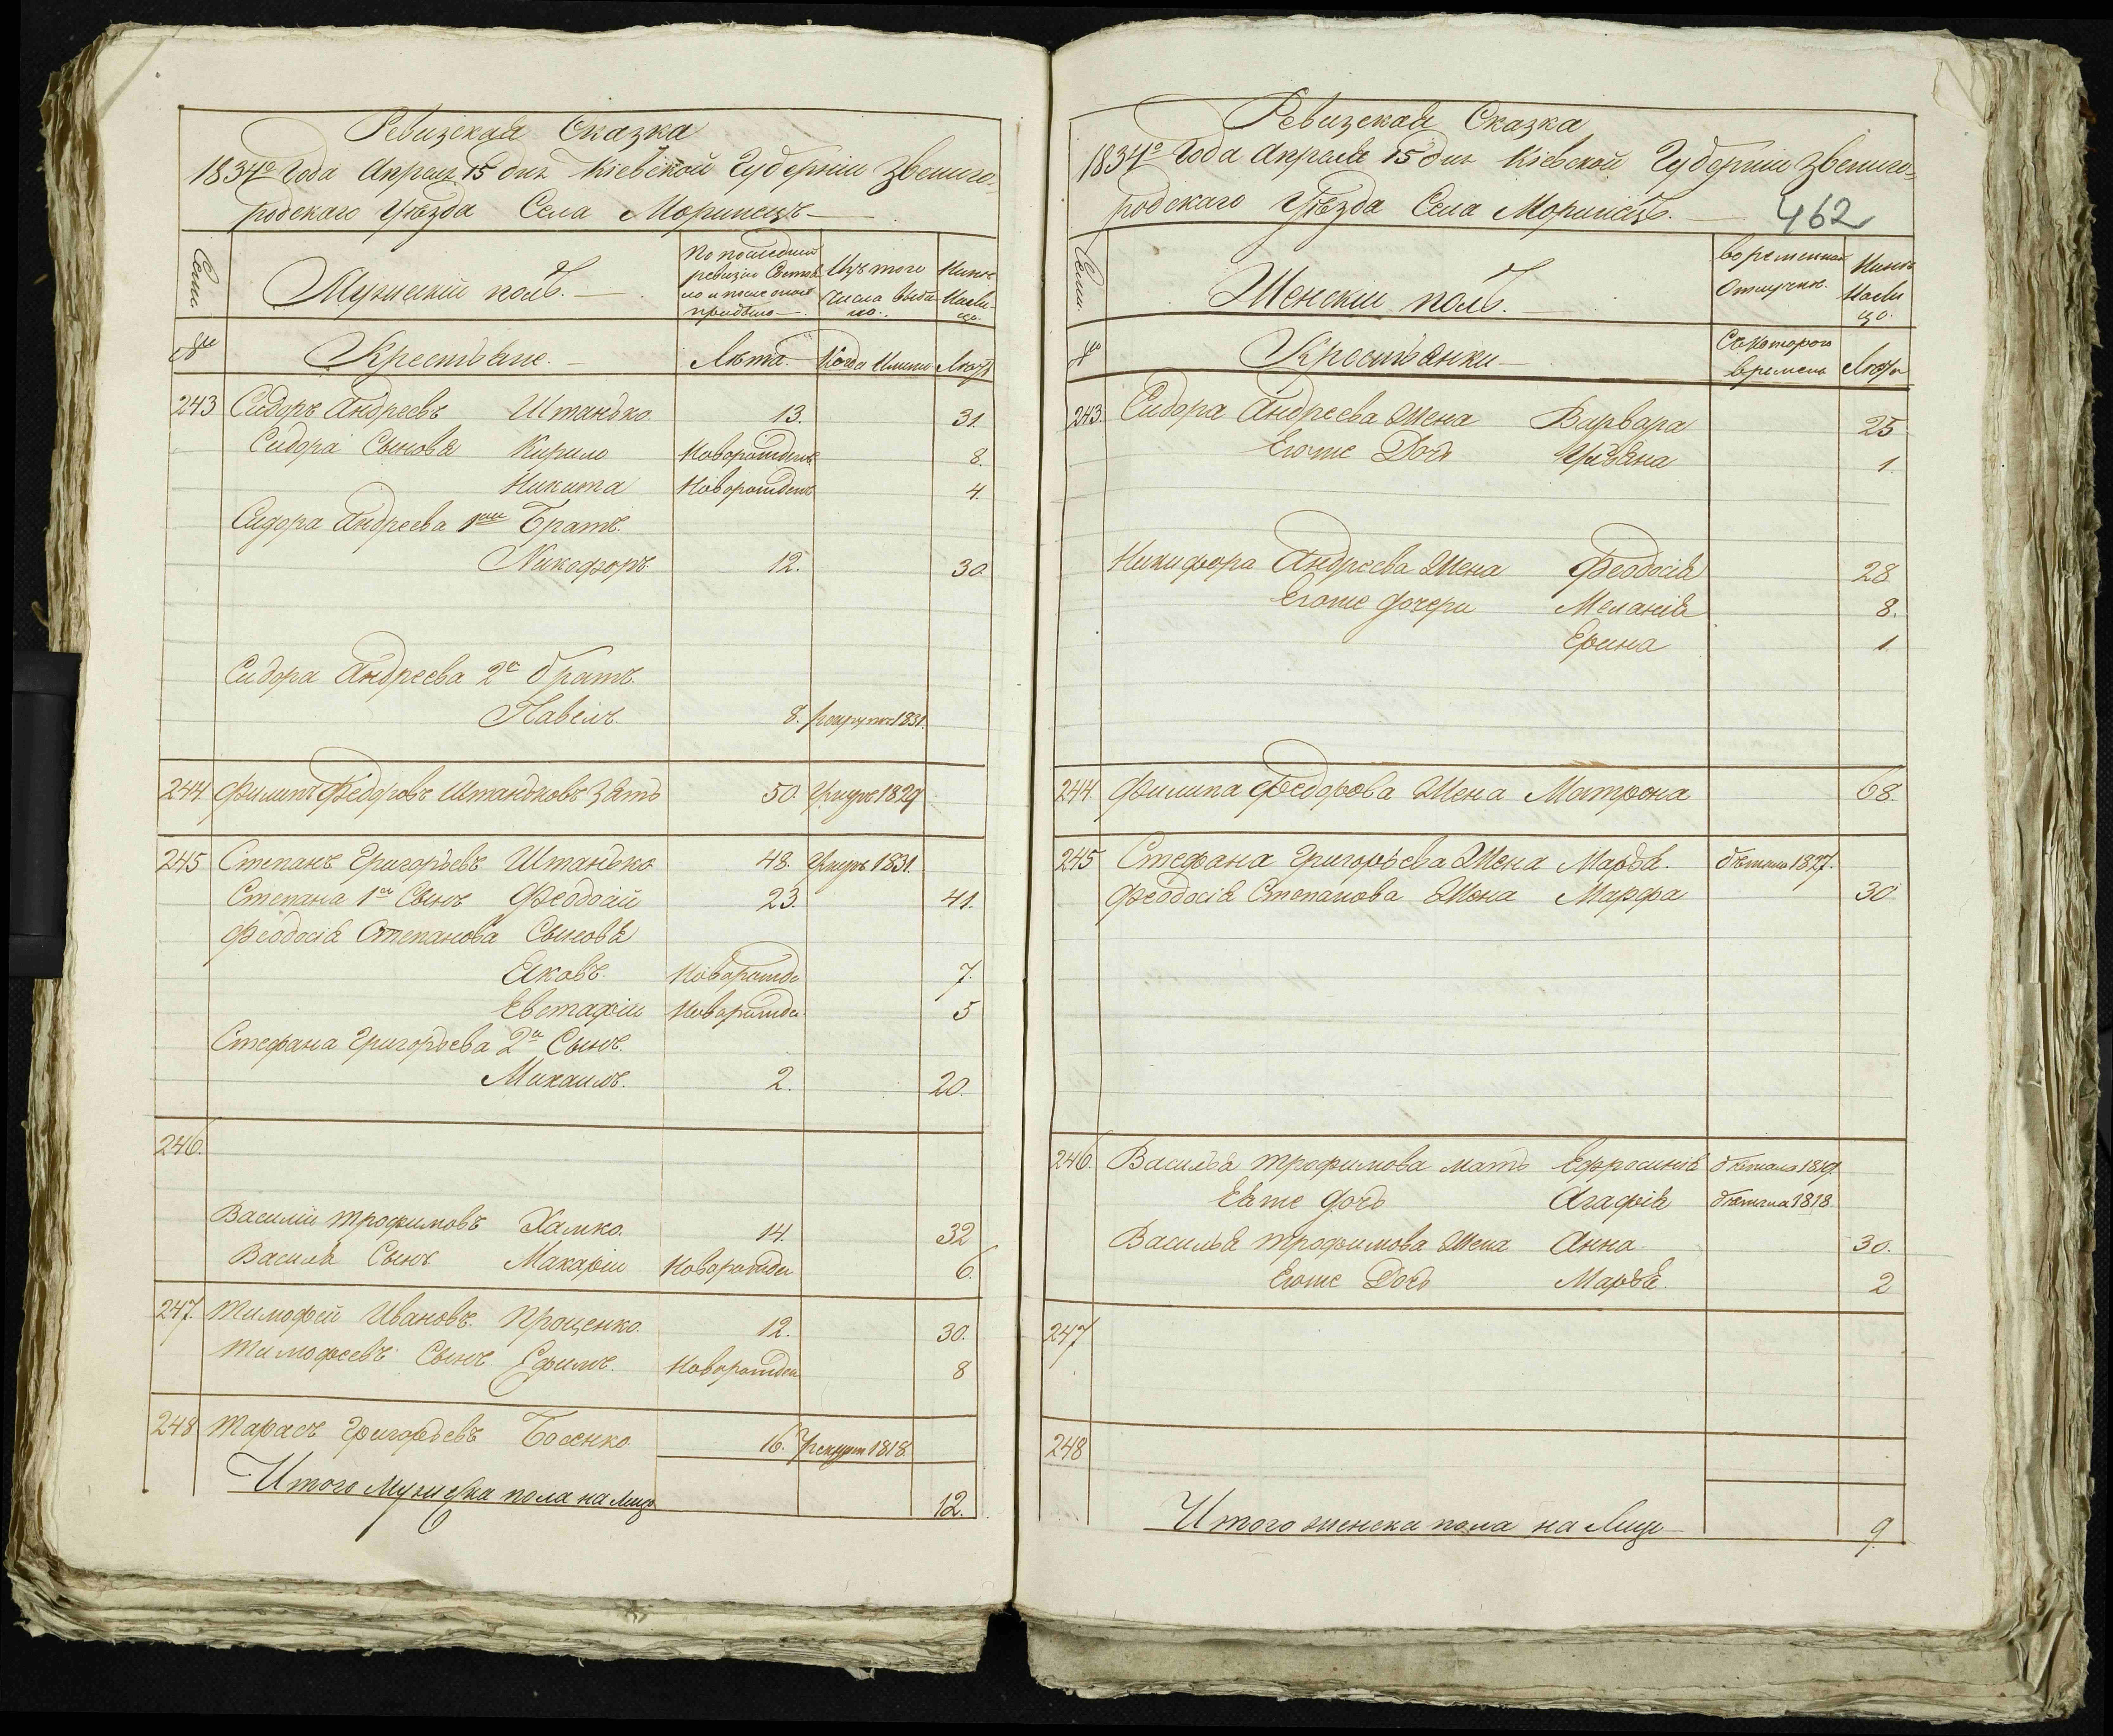 Ревизская Сказка
1834го Года Апреля 15 дня Кіевской Губерніи Звениго-
родскаго Уѣзда Села Моринецъ
Семи.
Мужескій полъ.
По последней
ревизіи Состоя
ло и после оной
прибыло
Изъ того
числа выбы
ло.
Ныне
Нали-
цо.
Крестьяне.
Лѣта.
Когда Именно
Лѣта
243 Сидоръ Андреевъ Штанько. 13. 31.
Сидора Сыновья Кирило Новорожденъ 8.
Никита Новорожденъ 4.
Сидора Андреева 1й Братъ.
Никофоръ 12. 30
Сидора Андреева 2й братъ.
Павелъ. 8. 1831.
244 Филипъ Федоровъ Штаньковъ Зять 50. Умре 1829
245 Степанъ Григорьевъ Штанько 48. Умре 1831.
Степана 1й Сынъ Феодосій 23. 41.
Феодосія Степанова Сыновья
Яковъ. Новорожде 7.
Евстафій Новорожде 5
Стефана Григорьева 2й Сынъ.
Михаилъ. 2. 20.
246.
Василій Трофимовъ Хамко. 14. 32
Василя Сынъ Макарій Новорожден 6.
247. Тимофей Ивановъ Проценко. 12. 30.
Тимофеевъ Сынъ Ефимъ. Новорожден 8
248 Тарасъ Григорьевъ 16. 1818.
Итого Мужеска пола на лицо 12.
Ревизская Сказка
1834го Года Апреля 15 дня Кіевской Губерніи Звениго=
родскаго Уѣзда Села Моринецъ.
462
Семи.
Женскій полъ.
временной
Отлучке.
Ныне
Нали
цо.
Крестьянки
Съ котораго
времени
Лѣта
243. Сидора Андреева Жена Варвара 25
Его же Дочь Ульяна 1.
Никифора Андреева Жена Феодосія 28
Его же Дочери Меланія 8.
Ерина 1
244 Филипа Федорова Жена Матрона 68.
245 Стефана Григорьева Жена Марья. бѣжала 1827.
Феодосія Степанова Жена Марфа 30
246. Василья Трофимова мать Ефросинія бѣжала 1819.
Ея же дочь Агафія бѣжала 1818
Василья Трофимова Жена Анна 30.
Его же Дочь Марья. 2
247
248
Итого женска пола на Лицо 9.